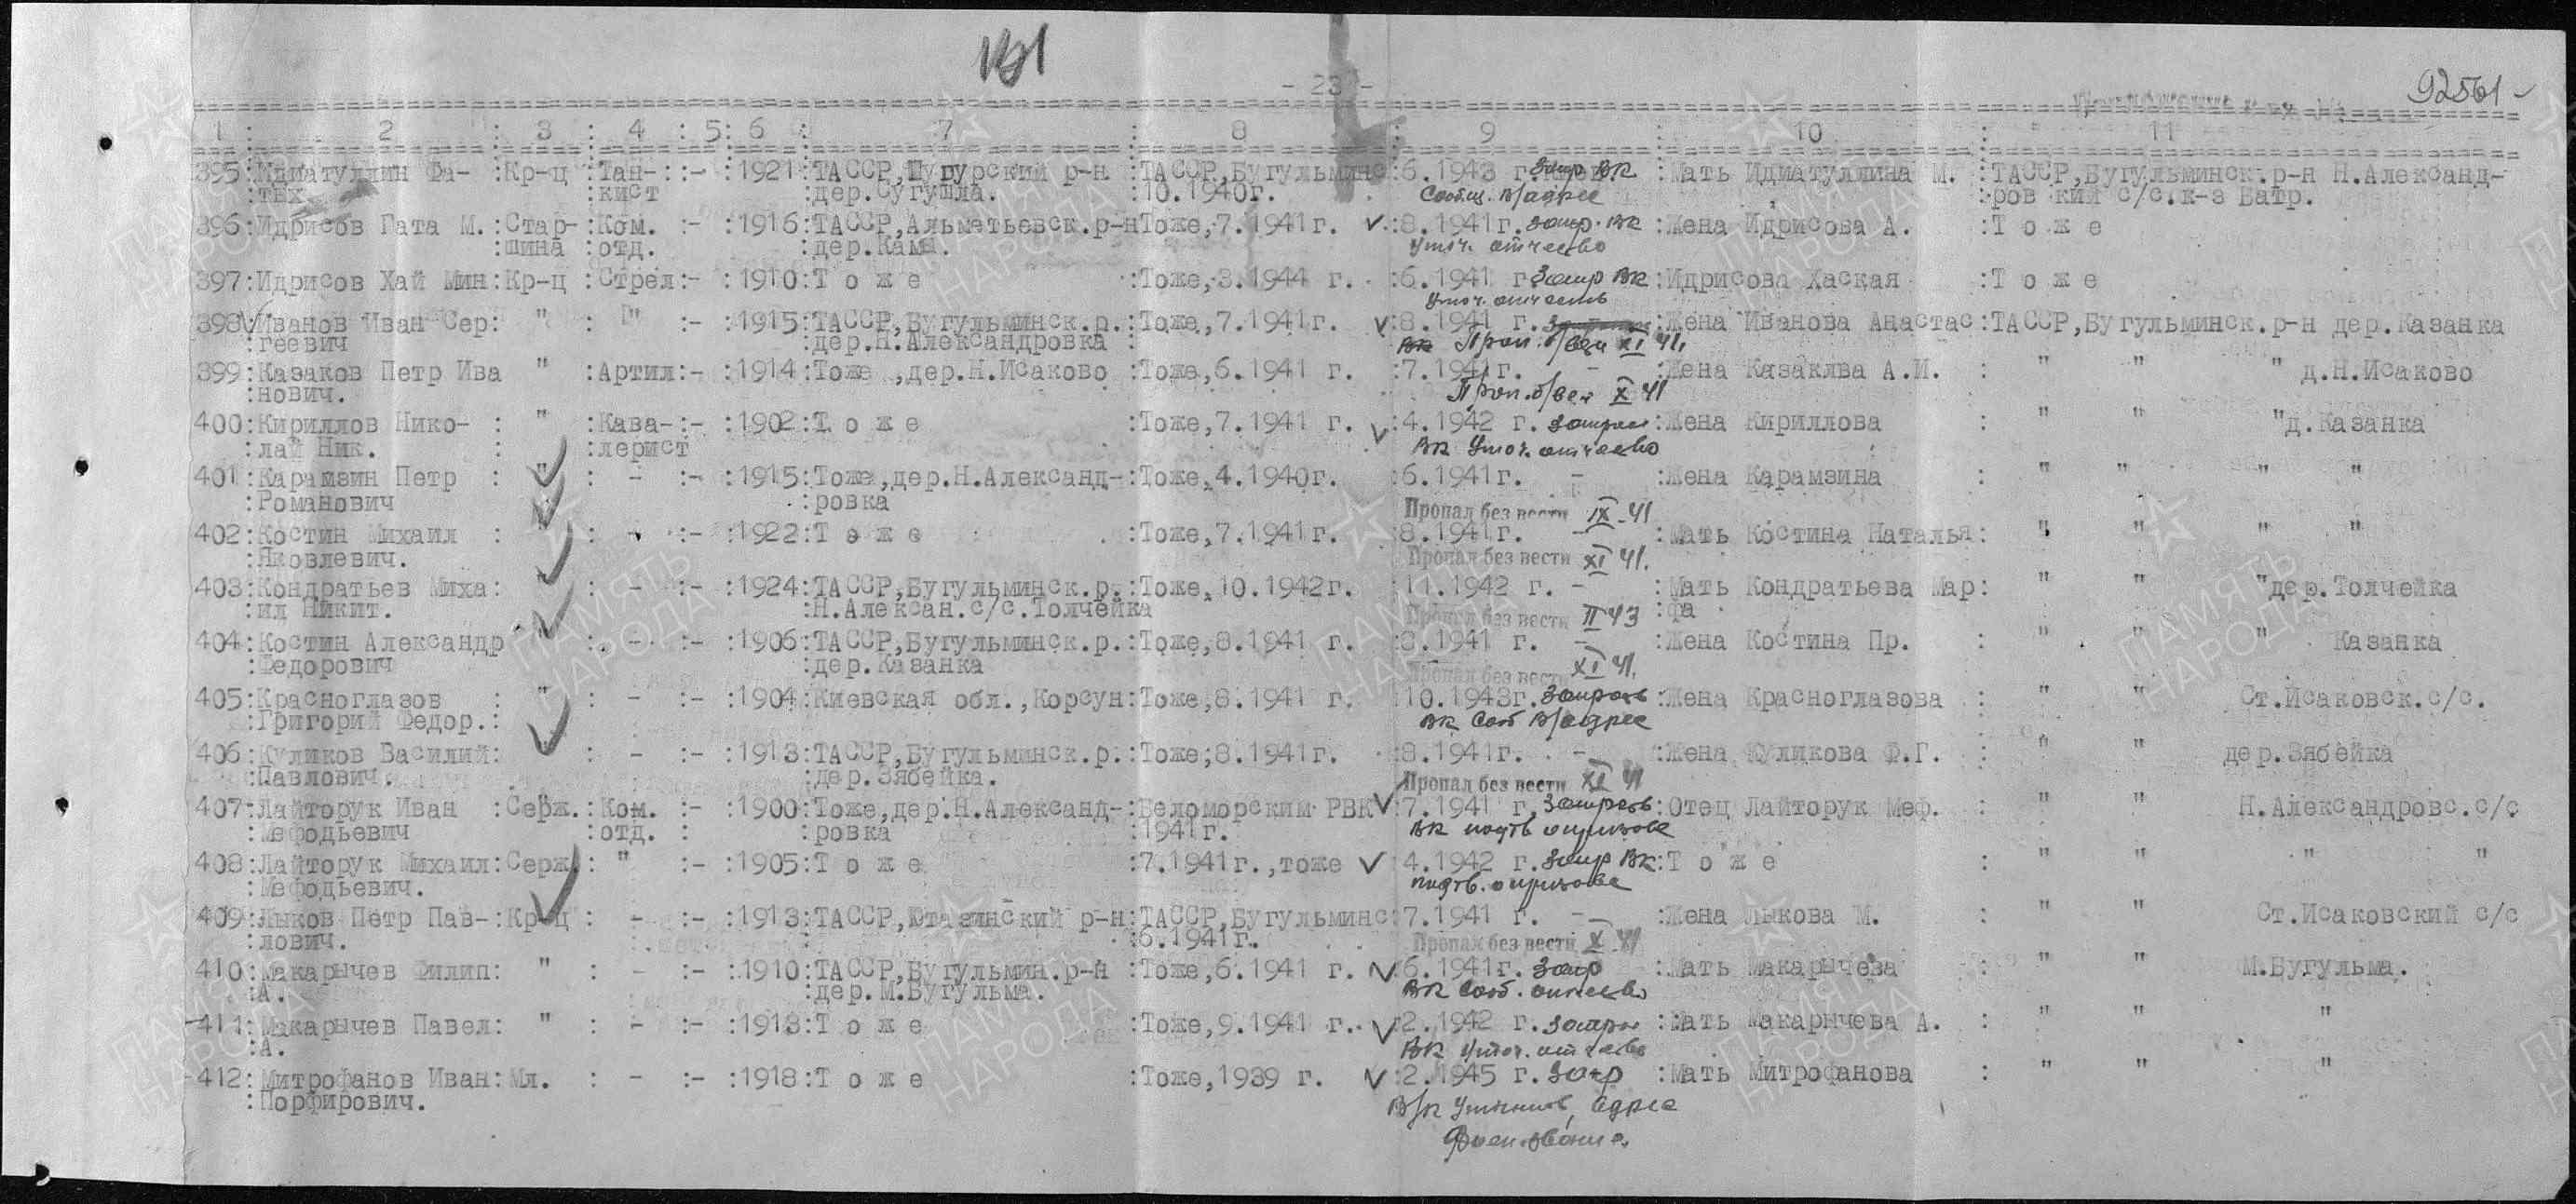 - 23 -
92561
1 : 2 : 3 : 4 : 5 : 6 : 7 : 8 : 9 : 10 : 11
395:Идиатуллин Фа- :Кр-ц :Тан- :- :1921:ТАССР, р-н :ТАССР,Бугульминс:6.1943 г. запр ВК :Мать Идиатуллина М. :ТАССР,Бугульминск.р-н Н.Александ-
:тых :кист :дер.Сугушла. :10.1940г. Сообщ. В/адрес :ров кий с/с.к-з Батр.
396:Идрисов Гата М.:Стар-:Ком. :- :1916:ТАССР,Альметьевск.р-нТоже,7.1941г. :8.1941г. запр. ВК :Жена Идрисова А. :Т о ж е
:шина :отд. :дер.Кама. Уточ. отчество
397:Идрисов Хай Мин:Кр-ц :Стрел:- :1910:Т о ж е :Тоже,3.1944 г. :6.1941 г. Запр ВК :Идрисова Хаская :Т о ж е
Уточ. отчеств
398:Иванов Иван Сер: " : " :- :1915:ТАССР,Бугульминск.р.:Тоже,7.1941г. :8.1941 г. :Жена Иванова Анастас:ТАССР,Бугульминск.р-н дер.Казанка
:геевич :дер.Н.Александровка : ВК Проп. б/вести XI 41.
399:Казаков Петр Ива " :Артил:- :1914:Тоже ,дер.Н.Исаково :Тоже,6.1941 г. :7.1941г. - :Жена Казаклва А.И. : " " " д.Н.Исаково
:нович. Проп.б/вес X 41
400:Кириллов Нико- : " :Кава-:- :1902:Т о ж е :Тоже,7.1941 г. :4.1942 г. запрос :Жена Кириллова : " " "д.Казанка
:лай Ник. : :лерист ВК Уточ. отчество
401:Карамзин Петр : " : - :- :1915:Тоже,дер.Н.Александ-:Тоже,4.1940г. :6.1941г. - :Жена Карамзина : " " " "
:Романович :ровка Пропал без вести IX-41
402:Костин Михаил : : - :- :1922:Т о ж е :Тоже,7.1941г. :8.1941г. - :Мать Костина Наталья: " " " "
:Яковлевич. Пропал без вести XI 41.
403:Кондратьев Миха: : - :- :1924:ТАССР,Бугульминск.р.:Тоже,10.1942г. :11.1942 г. - :Мать Кондратьева Мар: " " "дер.Толчейка
:ил Никит. :Н.Алексан.с/с.Толчейка Пропал без вести II 43 :фа
404:Костин Александр " : - :- :1906:ТАССР,Бугульминск.р.:Тоже,8.1941 г. :8.1941 г. - :Жена Костина Пр. : " " " Казанка
:Федорович :дер.Казанка Пропал без вести XI 41.
405:Красноглазов : " : - :- :1904:Киевская обл.,Корсун:Тоже,8.1941 г. :10.1943г. Запрос :Жена Красноглазова : " " Ст.Исаковск.с/с.
:Григорий Федор.: ВК Сооб В/адрес
406:Куликов Василий: : - :- :1913:ТАССР,Бугульминск.р.:Тоже,8.1941г. :8.1941г. - :Жена Куликова Ф.Г. : " " дер.Зябейка
:Павлович. :дер.Зябейка. Пропал без вести XI 41
407:Лайторук Иван :Серж.:Ком. :- :1900:Тоже,дер.Н.Александ-:Беломорским РВК :7.1941 г. :Отец Лайторук Меф. : " " Н.Александровс.с/с
:Мефодьевич :отд. : :ровка :1941г. ВК подтв о призове
408:Лайторук Михаил:Серж.: " :- :1905:Т о ж е :7.1941г.,тоже 4.1942 г. Запр ВК:Т о ж е : " " " "
:Мефодьевич. подтв. о призове
409:Лыков Петр Пав-:Кр-ц : - :- :1913:ТАССР,Ютазинский р-н:ТАССР,Бугульминс:7.1941 г. - :Жена Лыкова М. : " " Ст.Исаковский с/с
:лович. :6.1941г. Пропал без вести X 41
410:Макарычев Филип: " : - :- :1910:ТАССР,Бугульмин.р-н :Тоже,6.1941 г. :6.1941г. Запр :Мать Макарычева : " " М.Бугульма.
:А. :дер.М.Бугульма. ВК Сооб. отчество
411:Макарычев Павел: " : - :- :1913:Т о ж е :Тоже,9.1941 г. :2.1942 г. запрос :Мать Макарычева А. : " " "
:А. ВК Уточ. отчество
412:Митрофанов Иван:Мл. : - :- :1918:Т о ж е :Тоже,1939 г. :2.1945 г. Запр :Мать Митрофанова : " " "
:Порфирович. В/К Уточнить, адрес
Воен.звание.